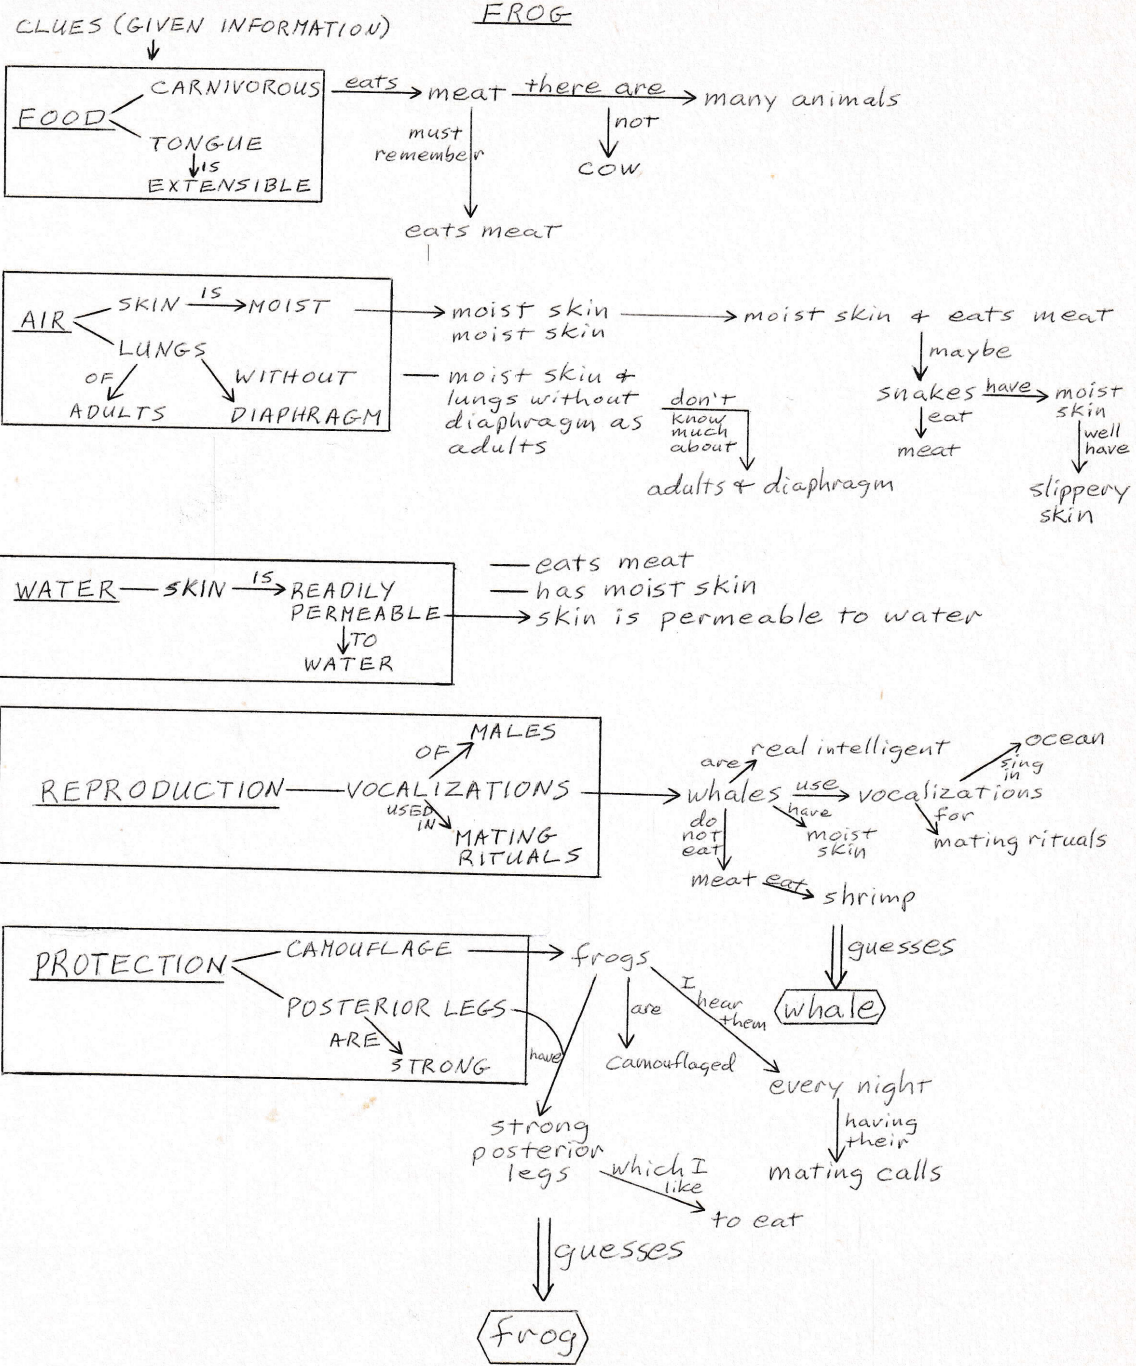 FROG
CLUES (GIVEN INFORMATION)
FOOD
CARNIVOROUS
TONGUE
IS
EXTENSIBLE
eats
meat
there are
many animals
not
cow
must
remember
eats meat
AIR
SKIN IS MOIST
LUNGS
OF
ADULTS
WITHOUT
DIAPHRAGM
moist skin
moist skin
moist skin & eats meat
moist skin &
lungs without
diaphragm as
adults
don't
know
much
about
adults & diaphragm
maybe
snakes have moist
skin
eat
meat
well
have
slippery
skin
WATER SKIN IS READILY
PERMEABLE
TO
WATER
eats meat
has moist skin
skin is permeable to water
REPRODUCTION VOCALIZATIONS
OF
MALES
USED
IN
MATING
RITUALS
whales
are
real intelligent
use
vocalizations
sing
in
ocean
for
mating rituals
have
moist
skin
do
not
eat
meat eat shrimp
guesses
whale
PROTECTION
CAMOUFLAGE
POSTERIOR LEGS
ARE
STRONG
frogs
have
strong
posterior
legs
which I
like
to eat
are
camouflaged
I
hear
them
every night
having
their
mating calls
guesses
frog